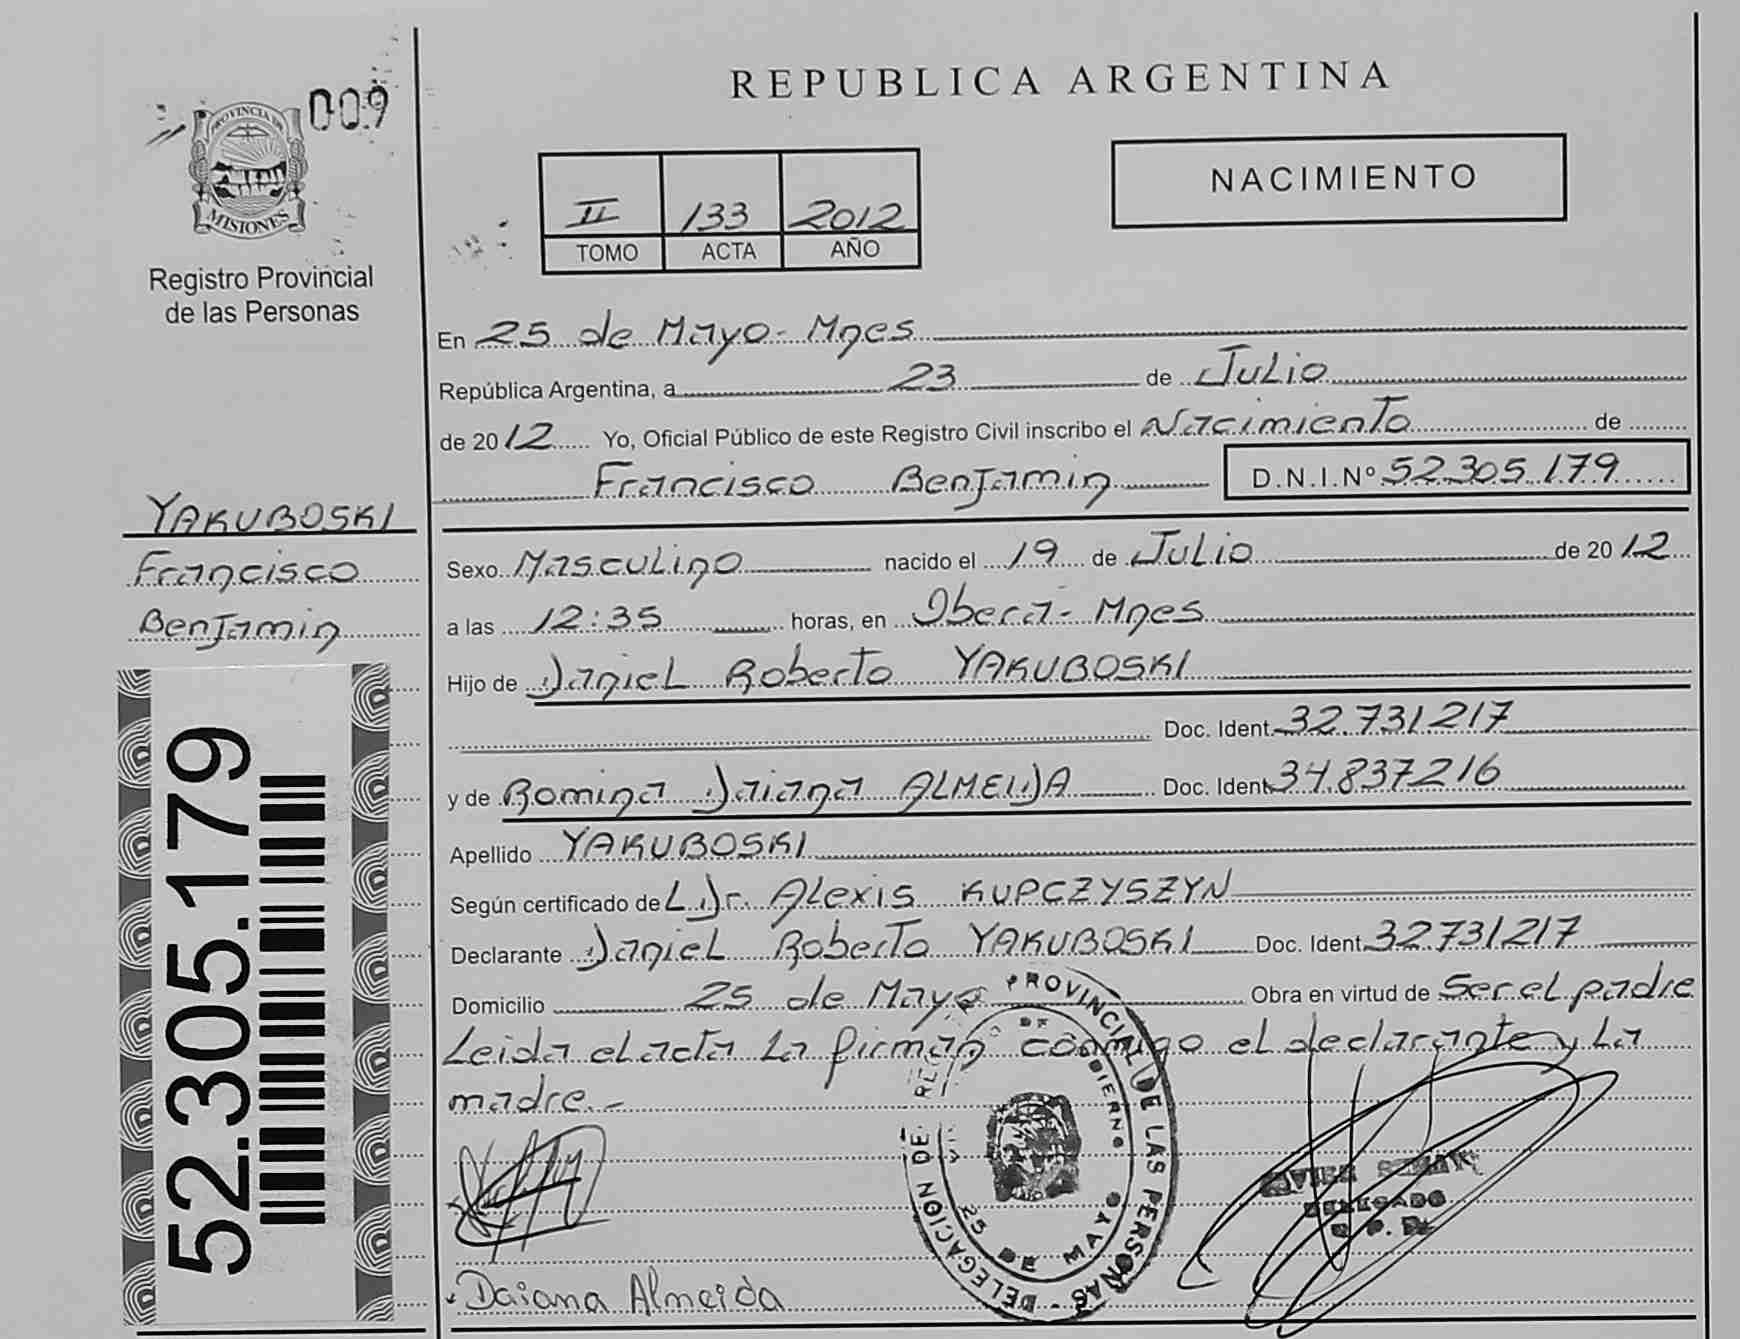 REPUBLICA ARGENTINA
009
PROVINCIA DE
MISIONES
Registro Provincial
de las Personas
II 133 2012
TOMO ACTA AÑO
NACIMIENTO
En 25 de Mayo - Mnes
República Argentina, a 23 de Julio
de 2012 Yo, Oficial Público de este Registro Civil inscribo el Nacimiento de
Francisco Benjamin D.N.I.Nº 52.305.179
YAKUBOSKI
Francisco
Benjamin
52.305.179
Sexo Masculino nacido el 19 de Julio de 2012
a las 12:35 horas, en Oberá - Mnes
Hijo de Daniel Roberto YAKUBOSKI
Doc. Ident. 32.731217
y de Romina Daiana ALMEIDA Doc. Ident. 34.837216
Apellido YAKUBOSKI
Según certificado de L Dr. Alexis KUPCZYSZYN
Declarante Daniel Roberto YAKUBOSKI Doc. Ident. 32731217
Domicilio 25 de Mayo Obra en virtud de Ser el padre
Leida el acta la firman conmigo el declarante y la
madre.-
PROVINCIAL DE LAS PERSONAS - DELEGACION DE
25 DE MAYO
DELEGADO
Daiana Almeida